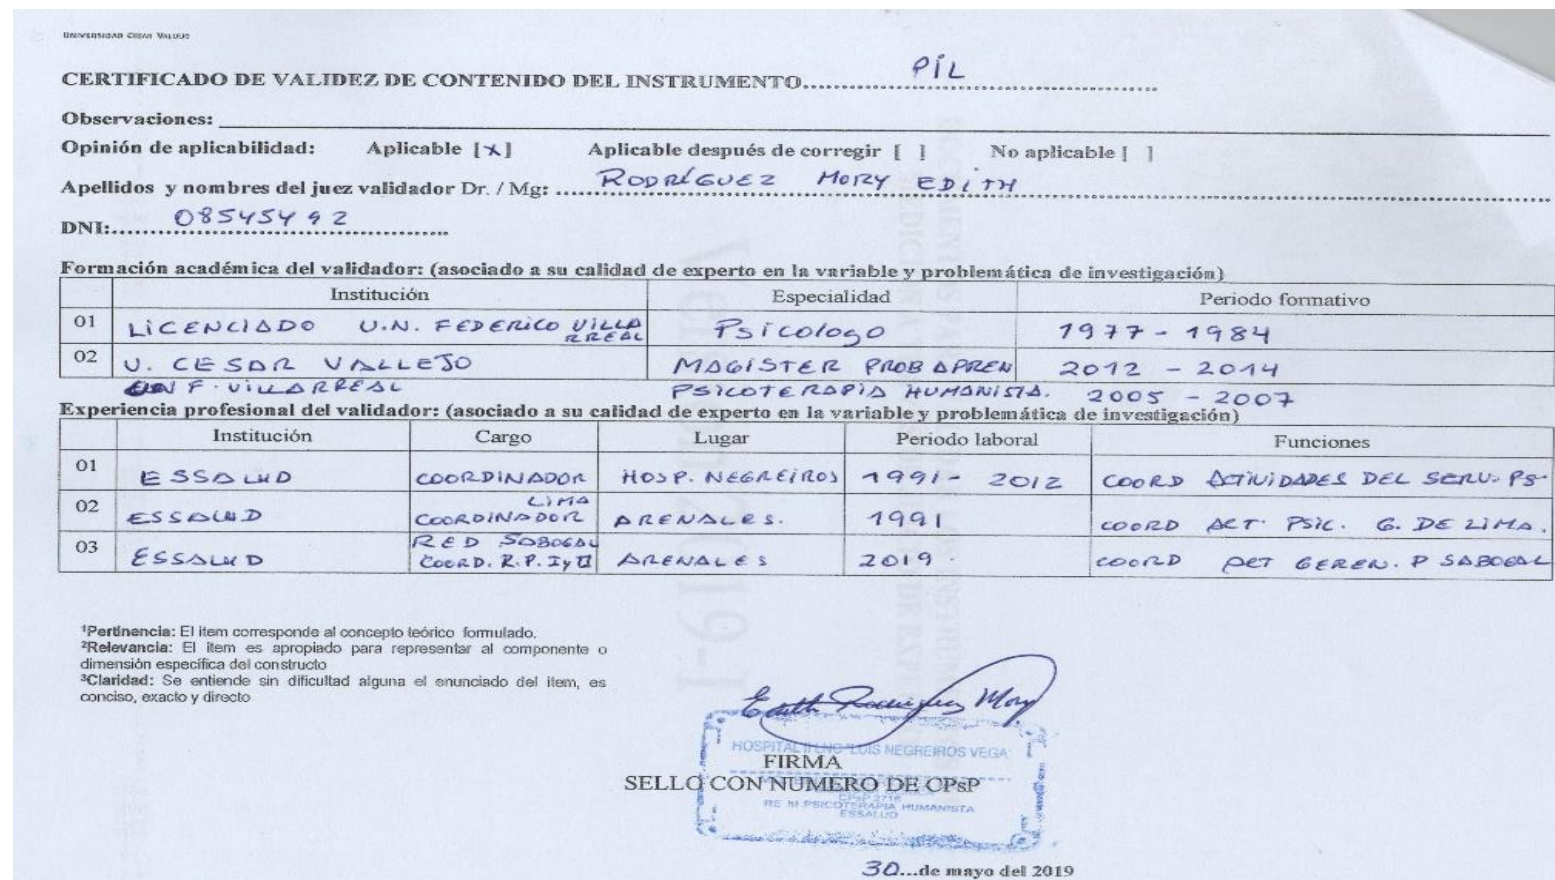 UNIVERSIDAD CESAR VALLEJO
CERTIFICADO DE VALIDEZ DE CONTENIDO DEL INSTRUMENTO.......... PÍL
Observaciones:
Opinión de aplicabilidad: Aplicable [x] Aplicable después de corregir [ ] No aplicable [ ]
Apellidos y nombres del juez validador Dr. / Mg: .... RODRÍGUEZ MORY EDITH
DNI:.... 08545492
Formación académica del validador: (asociado a su calidad de experto en la variable y problemática de investigación)
Institución Especialidad Periodo formativo
01 LICENCIADO U.N. FEDERICO VILLARREAL Psicologo 1977 - 1984
02 U. CESAR VALLEJO MAGISTER PROB APREN 2012 - 2014
UN F. VILLARREAL PSICOTERAPIA HUMANISTA. 2005 - 2007
Experiencia profesional del validador: (asociado a su calidad de experto en la variable y problemática de investigación)
Institución Cargo Lugar Periodo laboral Funciones
01 ESSALUD COORDINADOR HOSP. NEGREIROS 1991 - 2012 COORD ACTIVIDADES DEL SERV. PS.
02 ESSALUD COORDINADOR LIMA ARENALES. 1991 COORD ACT. PSIC. G. DE LIMA.
03 ESSALUD RED SABOGAL COORD. R.P. I y II ARENALES 2019. COORD ACT GEREN. P SABOGAL
¹Pertinencia: El item corresponde al concepto teórico formulado.
²Relevancia: El item es apropiado para representar al componente o
dimensión específica del constructo
³Claridad: Se entiende sin dificultad alguna el enunciado del item, es
conciso, exacto y directo
Edith Rodriguez Mory
HOSPITAL II LNO "LUIS NEGREIROS VEGA"
FIRMA
SELLO CON NUMERO DE CPsP
PSICOTERAPIA HUMANISTA
ESSALUD
30...de mayo del 2019